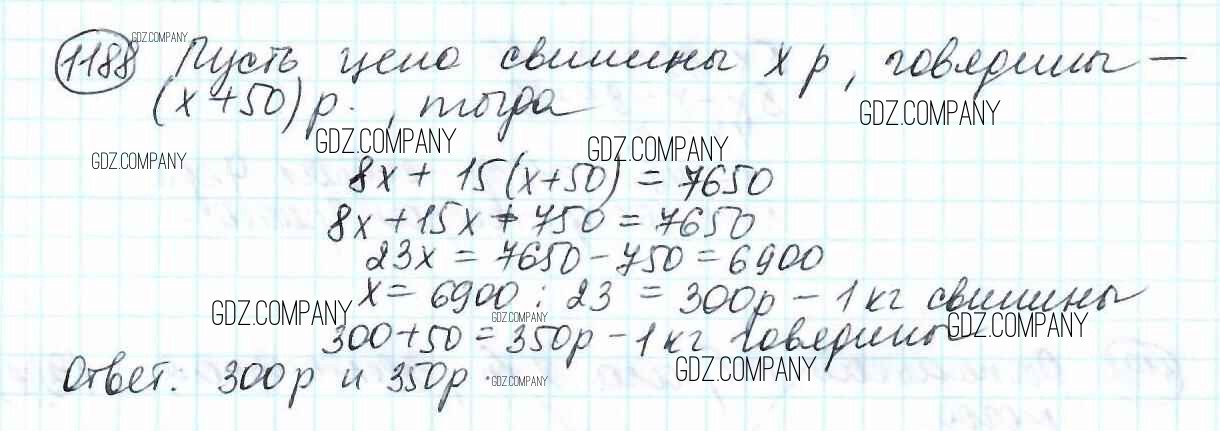 1188 Пусть цена свинины x р, говядины —
(x+50) р., тогда
8x + 15(x+50) = 7650
8x+15x+750=7650
23x = 7650-750=6900
x = 6900 : 23 = 300р - 1 кг свинины
300+50=350р-1кг говядины
Ответ: 300р и 350р.
GDZ.COMPANY
GDZ.COMPANY
GDZ.COMPANY
GDZ.COMPANY
GDZ.COMPANY
GDZ.COMPANY
GDZ.COMPANY
GDZ.COMPANY
GDZ.COMPANY
GDZ.COMPANY